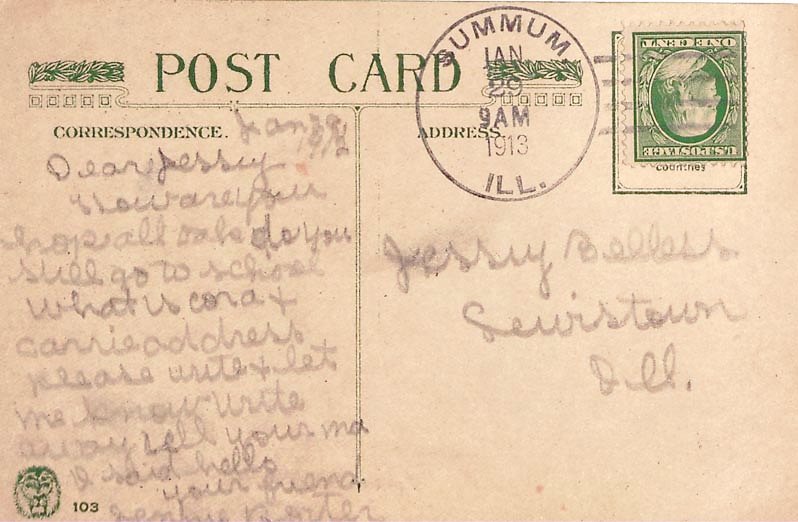 POST CARD
CORRESPONDENCE.
ADDRESS
SUMMUM
JAN
29
9AM
1913
ILL.
ONE CENT
U.S. POSTAGE
countries
Jan 29
1912
Dear Jessy
How are you
I hope all O.K. do you
still go to school
What is cora &
carrie address
please write & let
me know write
away tell your ma
I said hello
your friend
Porter
Jessy Belless
Lewistown
Ill.
103